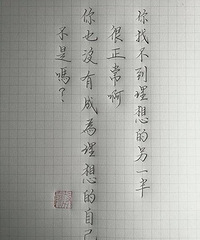 你找不到理想的另一半
很正常啊
你也沒有成為理想的自己
不是嗎？